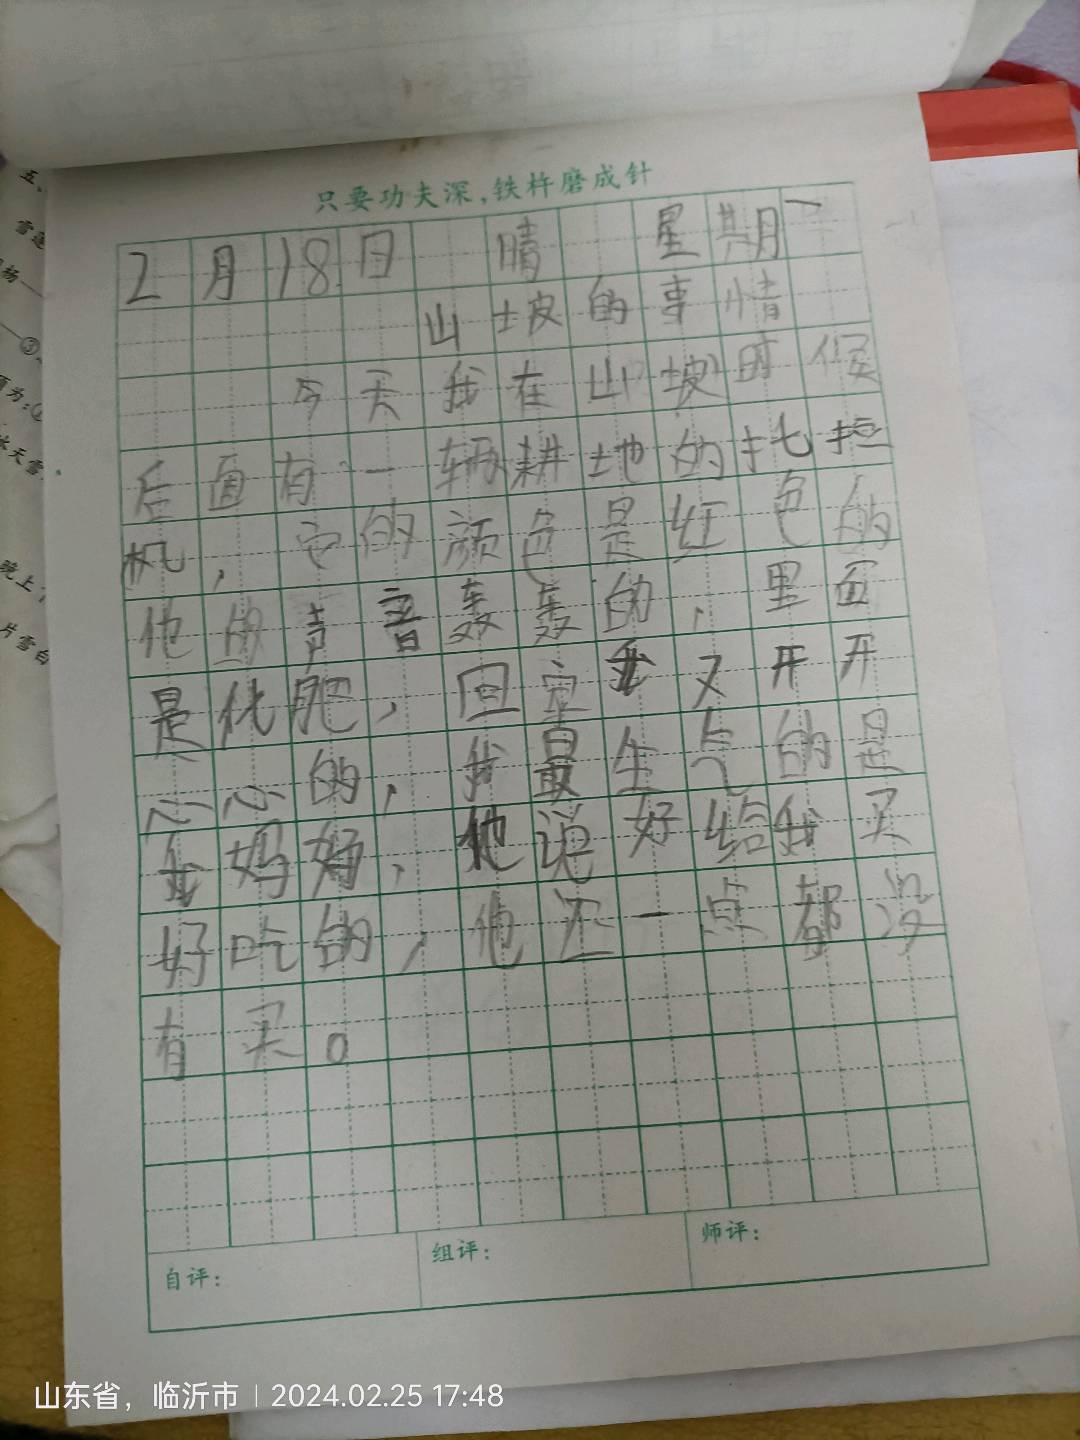 只要功夫深,铁杵磨成针
2月18日 晴 星期一
山坡的事情
今天我在山坡时候
后面有一辆耕地的拖拉
机,它的颜色是红色的
他的声音轰轰的,里面
是化肥,回家我又开开
心心的,我最生气的是
我妈妈,他说好给我买
好吃的,他还一点都没
有买。
自评: 组评: 师评:
五、
雪莲
杨——
——③
为:②
冰天雪
晚上
片雪白
山东省,临沂市 | 2024.02.25 17:48